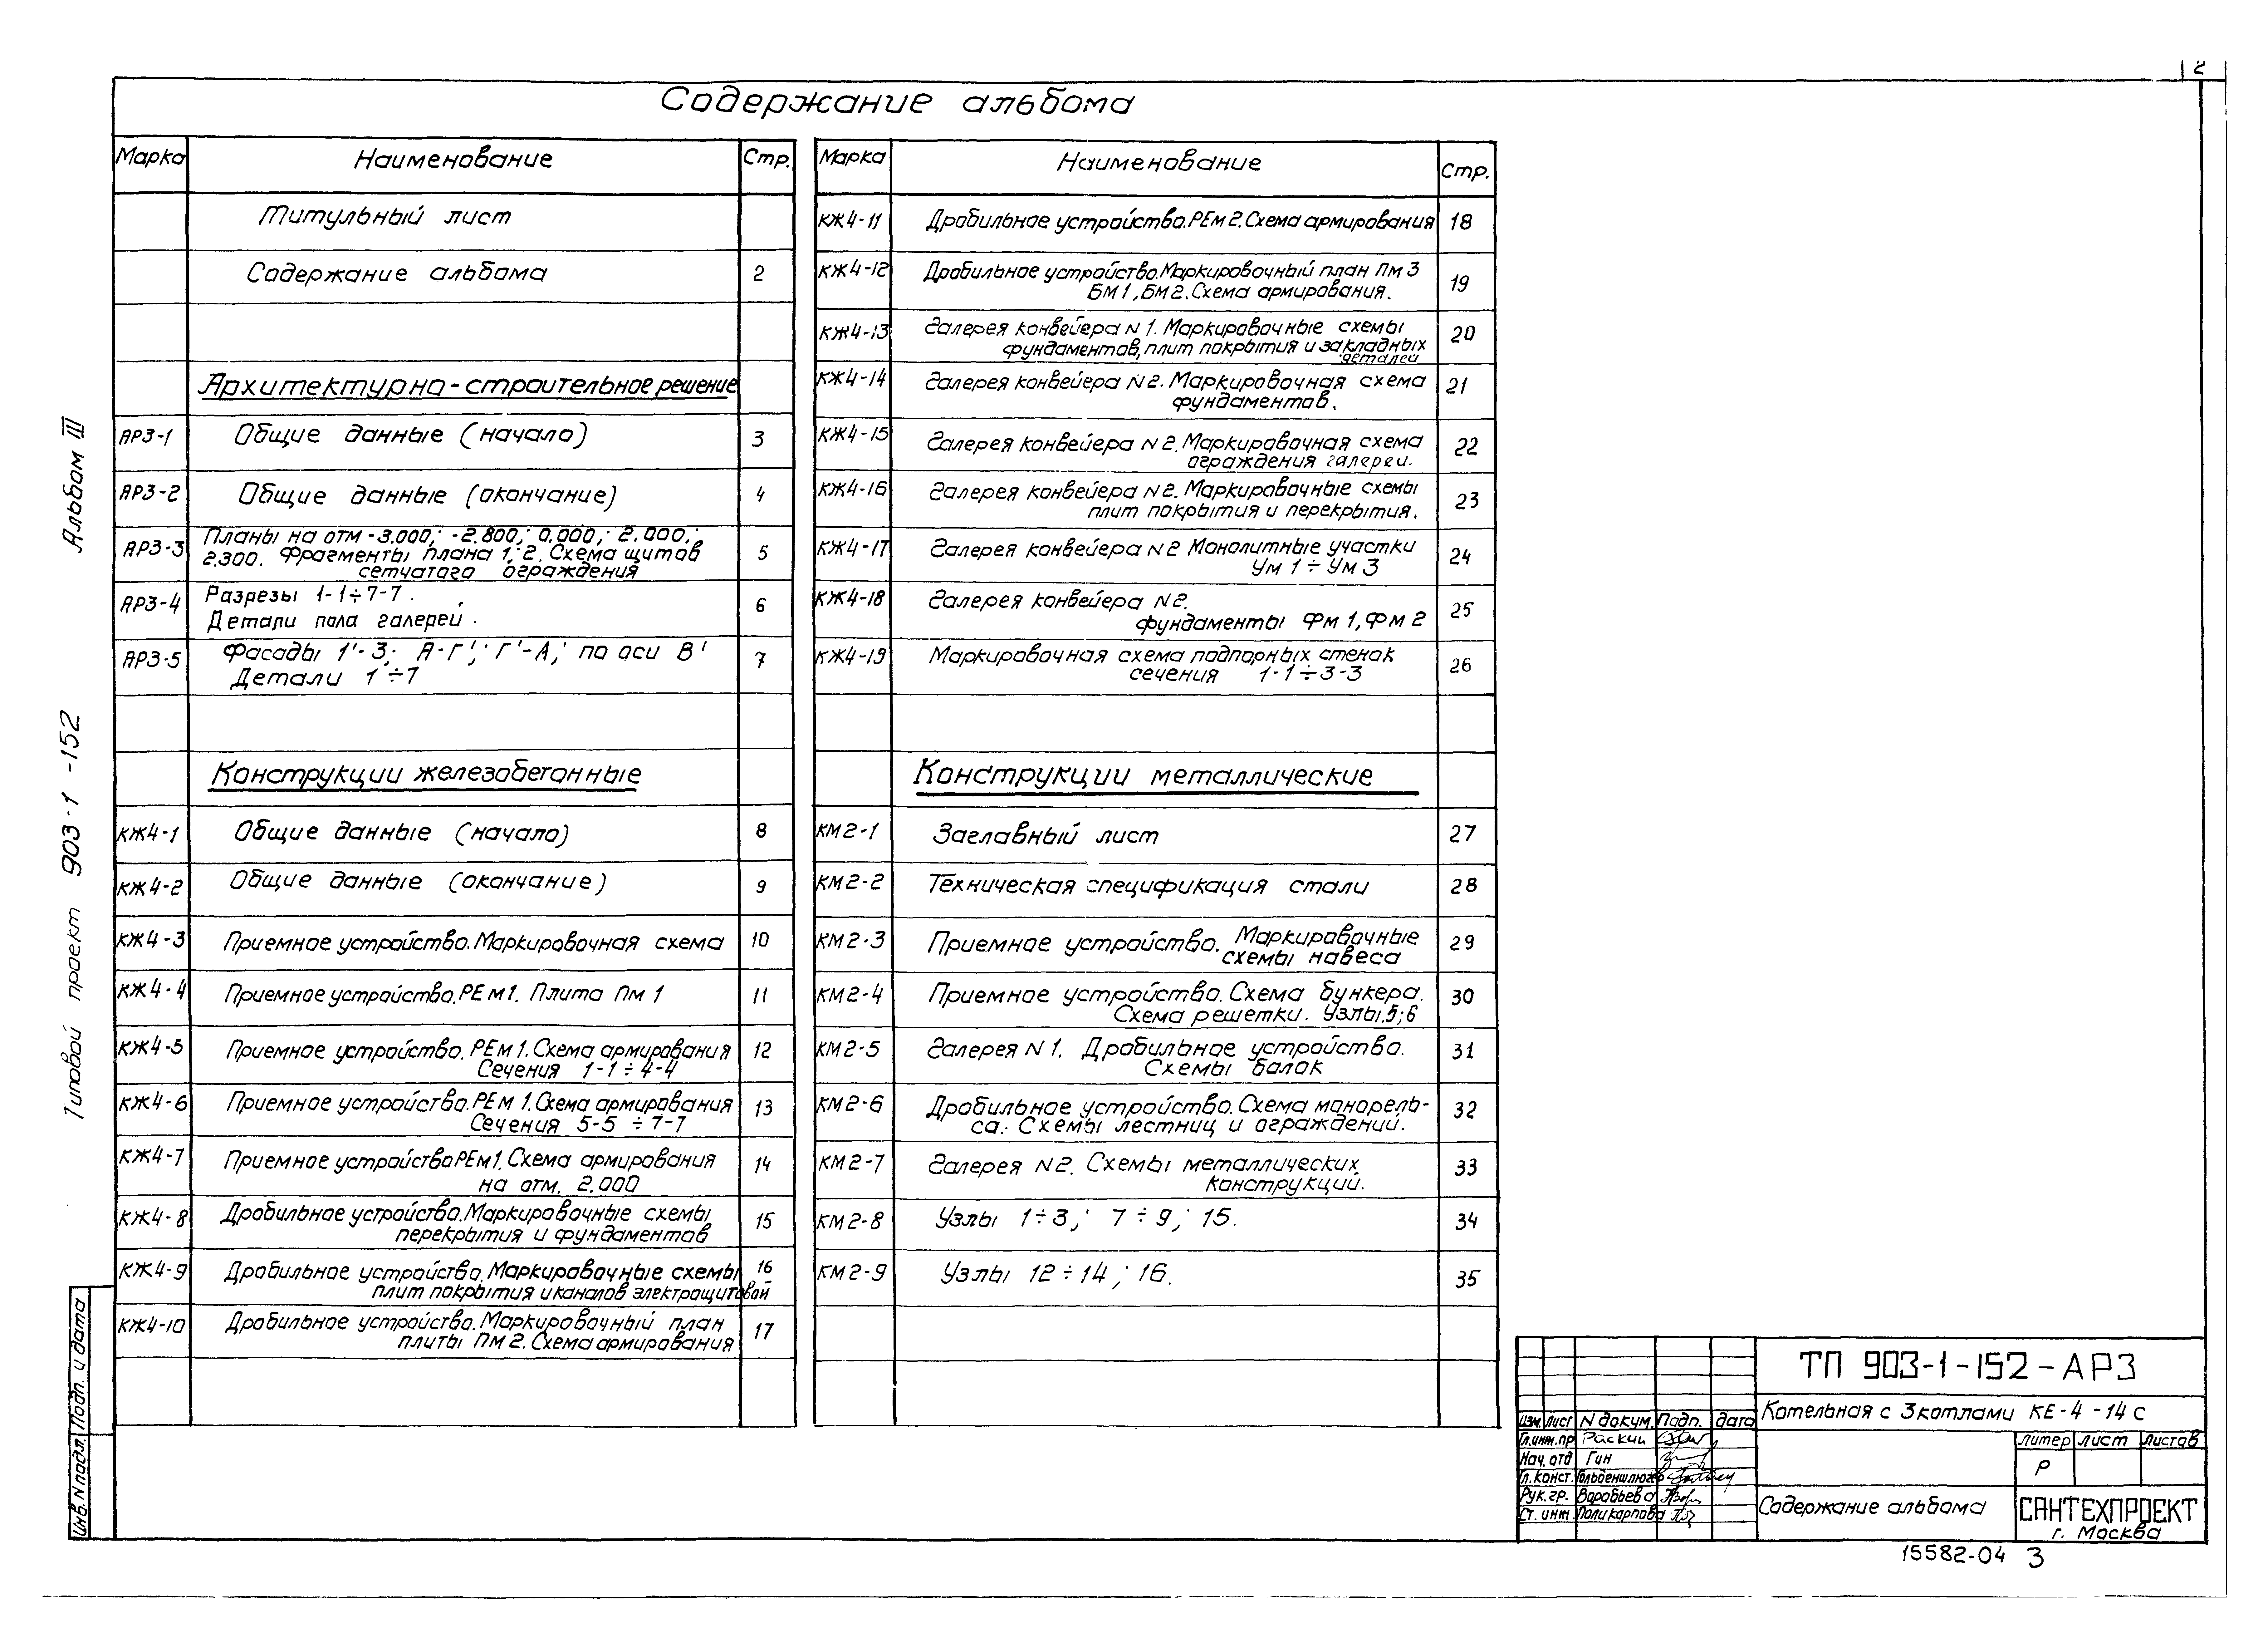 2
Содержание альбома
Марка Наименование Стр.
Титульный лист
Содержание альбома 2
Архитектурно-строительное решение
АР3-1 Общие данные (начало) 3
АР3-2 Общие данные (окончание) 4
АР3-3 Планы на отм -3.000; -2.800; 0.000; 2.000;
2.300. Фрагменты плана 1; 2. Схема щитов
сетчатого ограждения 5
АР3-4 Разрезы 1-1÷7-7.
Детали пола галерей. 6
АР3-5 Фасады 1'-3; А-Г'; Г'-А; по оси В'
Детали 1÷7 7
Конструкции железобетонные
КЖ4-1 Общие данные (начало) 8
КЖ4-2 Общие данные (окончание) 9
КЖ4-3 Приемное устройство. Маркировочная схема 10
КЖ4-4 Приемное устройство. РЕм1. Плита Пм 1 11
КЖ4-5 Приемное устройство. РЕм1. Схема армирования
Сечения 1-1÷4-4 12
КЖ4-6 Приемное устройство. РЕм 1. Схема армирования
Сечения 5-5 ÷ 7-7 13
КЖ4-7 Приемное устройство РЕм1. Схема армирования
на отм. 2.000 14
КЖ4-8 Дробильное устройство. Маркировочные схемы
перекрытия и фундаментов 15
КЖ4-9 Дробильное устройство. Маркировочные схемы
плит покрытия и каналов электрощитовой 16
КЖ4-10 Дробильное устройство. Маркировочный план
плиты Пм 2. Схема армирования 17
Марка Наименование Стр.
КЖ4-11 Дробильное устройство. РЕм 2. Схема армирования 18
КЖ4-12 Дробильное устройство. Маркировочный план Пм 3
БМ1, БМ2. Схема армирования. 19
КЖ4-13 Галерея конвейера N 1. Маркировочные схемы
фундаментов, плит покрытия и закладных
деталей 20
КЖ4-14 Галерея конвейера N2. Маркировочная схема
фундаментов. 21
КЖ4-15 Галерея конвейера N2. Маркировочная схема
ограждения галереи. 22
КЖ4-16 Галерея конвейера N2. Маркировочные схемы
плит покрытия и перекрытия. 23
КЖ4-17 Галерея конвейера N2 Монолитные участки
Ум 1 ÷ Ум 3 24
КЖ4-18 Галерея конвейера N2.
фундаменты Фм 1, Фм 2 25
КЖ4-19 Маркировочная схема подпорных стенок
сечения 1-1÷3-3 26
Конструкции металлические
КМ2-1 Заглавный лист 27
КМ2-2 Техническая спецификация стали 28
КМ2-3 Приемное устройство. Маркировочные
схемы навеса 29
КМ2-4 Приемное устройство. Схема бункера.
Схема решетки. Узлы.5;6 30
КМ2-5 Галерея N1. Дробильное устройство.
Схемы балок 31
КМ2-6 Дробильное устройство. Схема монорель-
са. Схемы лестниц и ограждений. 32
КМ2-7 Галерея N2. Схемы металлических
конструкций. 33
КМ2-8 Узлы 1÷3; 7÷9; 15. 34
КМ2-9 Узлы 12÷14; 16. 35
Альбом III
Типовой проект 903-1-152
Инв. N подл. Подп. и дата
ТП 903-1-152-АР3
Котельная с 3 котлами КЕ-4-14С
Изм. Лист N докум. Подп. дата
Гл.инж.пр Раскин
Нач. отд Гин
Гл. конст.
Рук. гр. Воробьева
Ст. инж. Поликарпова
Литер Лист Листов
Р
Содержание альбома
САНТЕХПРОЕКТ
г. Москва
15582-04 3